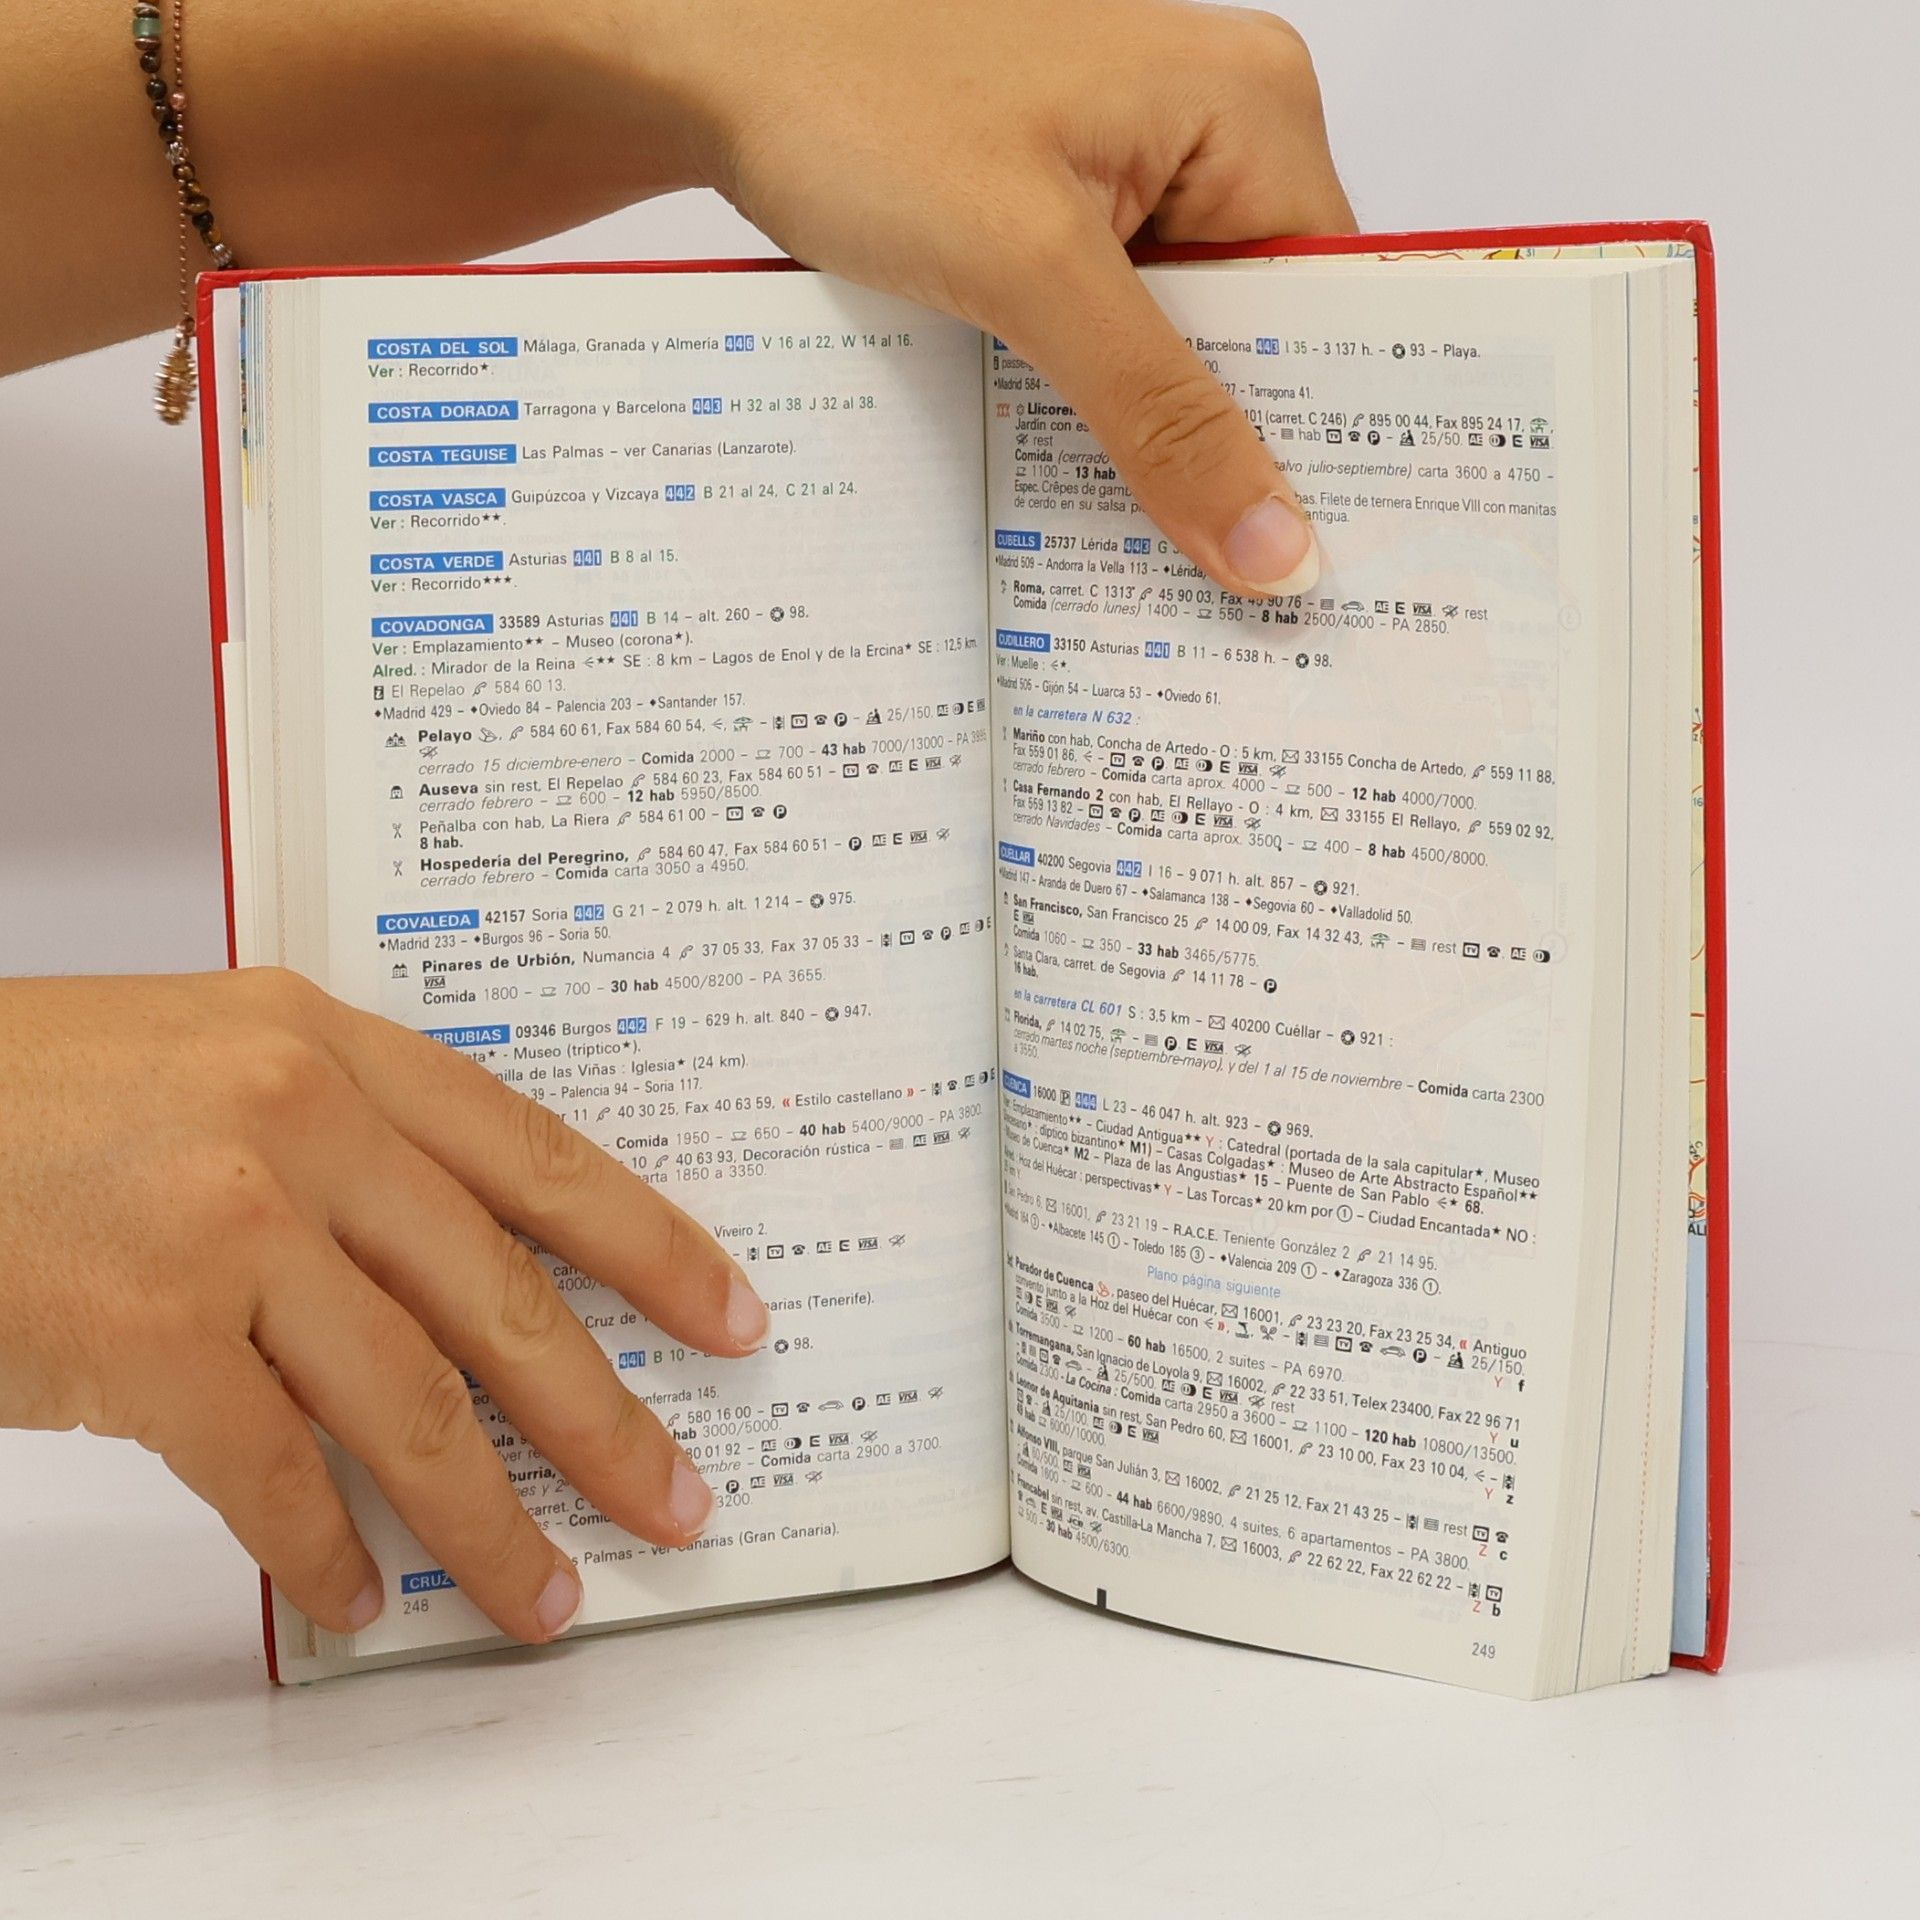 COSTA DEL SOL Málaga, Granada y Almería 446 V 16 al 22, W 14 al 16.
Ver : Recorrido★.
COSTA DORADA Tarragona y Barcelona 443 H 32 al 38 J 32 al 38.
COSTA TEGUISE Las Palmas – ver Canarias (Lanzarote).
COSTA VASCA Guipúzcoa y Vizcaya 442 B 21 al 24, C 21 al 24.
Ver : Recorrido★★.
COSTA VERDE Asturias 441 B 8 al 15.
Ver : Recorrido★★★.
COVADONGA 33589 Asturias 441 B 14 – alt. 260 – 98.
Ver : Emplazamiento★★ – Museo (corona★).
Alred. : Mirador de la Reina ★★ SE : 8 km – Lagos de Enol y de la Ercina★ SE : 12,5 km.
El Repelao 584 60 13.
♦Madrid 429 – ♦Oviedo 84 – Palencia 203 – ♦Santander 157.
Pelayo 584 60 61, Fax 584 60 54, – TV P – 25/150. AE E
cerrado 15 diciembre-enero – Comida 2000 – 700 – 43 hab 7000/13000 – PA 3895
Auseva sin rest, El Repelao 584 60 23, Fax 584 60 51 – TV AE E VISA
cerrado febrero – 600 – 12 hab 5950/8500.
Peñalba con hab, La Riera 584 61 00 – TV P
8 hab.
Hospedería del Peregrino, 584 60 47, Fax 584 60 51 – P. AE E VISA
cerrado febrero – Comida carta 3050 a 4950.
COVALEDA 42157 Soria 442 G 21 – 2 079 h. alt. 1 214 – 975.
♦Madrid 233 – ♦Burgos 96 – Soria 50.
Pinares de Urbión, Numancia 4 37 05 33, Fax 37 05 33 – TV P AE E
VISA
Comida 1800 – 700 – 30 hab 4500/8200 – PA 3655.
ARRUBIAS 09346 Burgos 442 F 19 – 629 h. alt. 840 – 947.
ata★ - Museo (tríptico★).
nilla de las Viñas : Iglesia★ (24 km).
39 – Palencia 94 – Soria 117.
11 40 30 25, Fax 40 63 59, « Estilo castellano » – AE E
– Comida 1950 – 650 – 40 hab 5400/9000 – PA 3800.
10 40 63 93, Decoración rústica – AE VISA
arta 1850 a 3350.
Viveiro 2.
– TV AE E VISA
4000/
Cruz de arias (Tenerife).
441 B 10 – 98.
onferrada 145.
580 16 00 – TV P. AE VISA
hab 3000/5000.
80 01 92 – AE E VISA
embre – Comida carta 2900 a 3700.
burria, – P. AE VISA
carret. C 3200.
– Comi
s Palmas – ver Canarias (Gran Canaria).
CRUZ
248
Barcelona 443 I 35 – 3 137 h. – 93 – Playa.
00.
♦Madrid 584 – 27 – Tarragona 41.
Llicorel 101 (carret. C 246) 895 00 44, Fax 895 24 17,
Jardín con es – hab TV P – 25/50. AE E VISA
rest
Comida (cerrado salvo julio-septiembre) carta 3600 a 4750 –
1100 – 13 hab
Espec. Crêpes de gamb bas. Filete de ternera Enrique VIII con manitas
de cerdo en su salsa antigua.
CUBELLS 25737 Lérida 443 G
♦Madrid 509 – Andorra la Vella 113 – ♦Lérida
Roma, carret. C 1313 45 90 03, Fax 45 90 76 – AE E VISA rest
Comida (cerrado lunes) 1400 – 550 – 8 hab 2500/4000 – PA 2850.
CUDILLERO 33150 Asturias 441 B 11 – 6 538 h. – 98.
Ver : Muelle : ★.
♦Madrid 505 – Gijón 54 – Luarca 53 – ♦Oviedo 61.
en la carretera N 632 :
Mariño con hab, Concha de Artedo - O : 5 km, 33155 Concha de Artedo, 559 11 88,
Fax 559 01 86, – TV P. AE E VISA
cerrado febrero – Comida carta aprox. 4000 – 500 – 12 hab 4000/7000.
Casa Fernando 2 con hab, El Rellayo - O : 4 km, 33155 El Rellayo, 559 02 92,
Fax 559 13 82 – TV P. AE E VISA
cerrado Navidades – Comida carta aprox. 3500 – 400 – 8 hab 4500/8000.
CUÉLLAR 40200 Segovia 442 I 16 – 9 071 h. alt. 857 – 921.
♦Madrid 147 – Aranda de Duero 67 – ♦Salamanca 138 – ♦Segovia 60 – ♦Valladolid 50.
San Francisco, San Francisco 25 14 00 09, Fax 14 32 43, – rest TV AE
E VISA
Comida 1060 – 350 – 33 hab 3465/5775.
Santa Clara, carret. de Segovia 14 11 78 – P
16 hab.
en la carretera CL 601 S : 3,5 km – 40200 Cuéllar – 921 :
Florida, 14 02 75, – P. E VISA
cerrado martes noche (septiembre-mayo), y del 1 al 15 de noviembre – Comida carta 2300
a 3550.
CUENCA 16000 P 444 L 23 – 46 047 h. alt. 923 – 969.
Ver : Emplazamiento★★ – Ciudad Antigua★★ Y : Catedral (portada de la sala capitular★, Museo
Diocesano★ : díptico bizantino★ M1) – Casas Colgadas★ : Museo de Arte Abstracto Español★★
Museo de Cuenca★ M2 – Plaza de las Angustias★ 15 – Puente de San Pablo ★ 68.
Alred. : Hoz del Huécar : perspectivas★ Y – Las Torcas★ 20 km por ① – Ciudad Encantada★ NO :
km Y.
San Pedro 6, 16001, 23 21 19 – R.A.C.E. Teniente González 2 21 14 95.
♦Madrid 164 ③ – ♦Albacete 145 ① – Toledo 185 ③ – ♦Valencia 209 ① – ♦Zaragoza 336 ①.
Plano página siguiente
Parador de Cuenca, paseo del Huécar, 16001, 23 23 20, Fax 23 25 34, « Antiguo
convento junto a la Hoz del Huécar con », – TV P – 25/150.
E VISA Y f
Comida 3500 – 1200 – 60 hab 16500, 2 suites – PA 6970.
Torremangana, San Ignacio de Loyola 9, 16002, 22 33 51, Telex 23400, Fax 22 96 71
– 25/500. AE E VISA rest Y u
Comida 2300 - La Cocina : Comida carta 2950 a 3600 – 1100 – 120 hab 10800/13500.
Leonor de Aquitania sin rest, San Pedro 60, 16001, 23 10 00, Fax 23 10 04, –
– 25/100. AE E VISA Y z
49 hab 6000/10000.
Alfonso VIII, parque San Julián 3, 16002, 21 25 12, Fax 21 43 25 – rest TV
– 60/500. AE VISA Z c
Comida 1600 – 600 – 44 hab 6600/9890, 4 suites, 6 apartamentos – PA 3800.
Francabel sin rest, av. Castilla-La Mancha 7, 16003, 22 62 22, Fax 22 62 22 – TV
E VISA JCB Z b
500 – 30 hab 4500/6300.
249